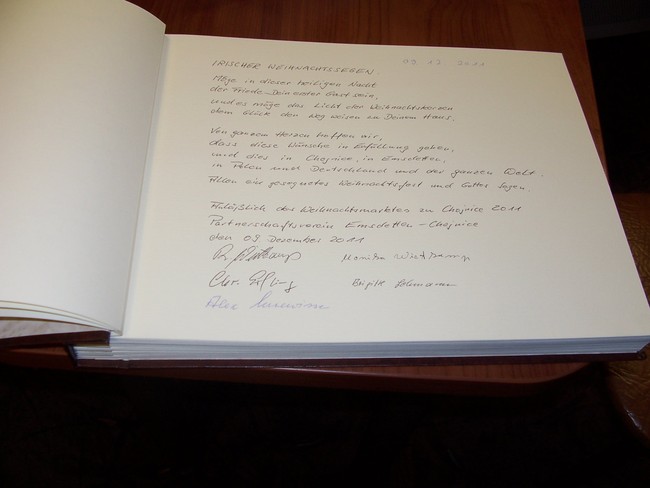 IRISCHER WEIHNACHTSSEGEN.
09 12 2011
Möge in dieser heiligen Nacht
der Friede Dein erster Gast sein,
und es möge das Licht der Weihnachtskerzen
dem Glück den Weg weisen zu Deinem Haus.
Von ganzem Herzen hoffen wir,
dass diese Wünsche in Erfüllung gehen,
und dies in Chojnice, in Emsdetten,
in Polen und Deutschland und der ganzen Welt.
Allen ein gesegnetes Weihnachtsfest und Gottes Segen.
Anläßlich des Weihnachtsmarktes zu Chojnice 2011
Partnerschaftsverein Emsdetten-Chojnice
den 09. Dezember 2011
Monika
Brigitte